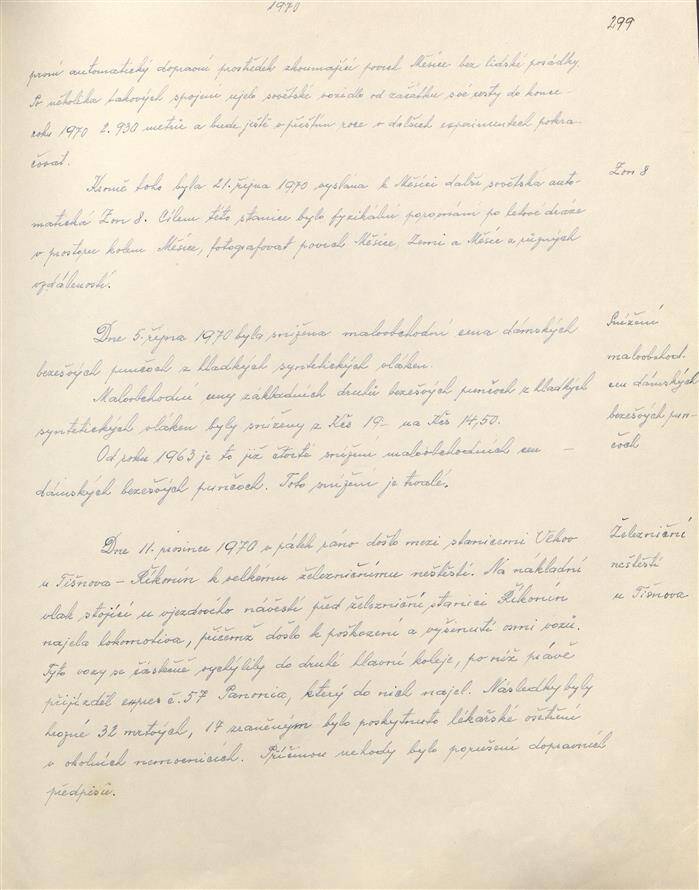 1970
299
první automatický dopravní prostředek zkoumající povrch Měsíce bez lidské posádky.
Po několika takových spojení ujelo sovětské vozidlo od začátku své cesty do konce
roku 1970 2.930 metrů a bude ještě v příštím roce v dalších experimentech pokra-
čovat.
Kromě toho byla 21. října 1970 vyslána k Měsíci další sovětská auto-
matická Zon 8. Cílem této stanice bylo fyzikální po letové dráze
v prostoru kolem Měsíce, fotografovat povrch Měsíce, Zemi a Měsíc z různých
vzdáleností.
Zon 8
Dne 5. října 1970 byla snížena maloobchodní cena dámských
bezešvých punčoch z hladkých syntetických vláken.
Maloobchodní ceny základních druhů bezešvých punčoch z hladkých
syntetických vláken byly sníženy z Kčs 19.- na Kčs 14,50.
Od roku 1963 je to již čtvrté snížení maloobchodních cen
dámských bezešvých punčoch. Toto snížení je trvalé.
Snížení
maloobchod.
cen dámských
bezešvých pun-
čoch
Dne 11. prosince 1970 v pátek ráno došlo mezi stanicemi
u Tišnova – Říkonín k velkému železničnímu neštěstí. Na nákladní
vlak stojící u vjezdového návěstí před železniční stanicí Říkonín
najela lokomotiva, přičemž došlo k poškození a vyšinutí osmi vozů.
Tyto vozy se částečně vychýlily do druhé hlavní koleje, po níž právě
přijížděl expres č. 57 Panonia, který do nich najel. Následky byly
hrozné 32 mrtvých, 17 zraněným bylo poskytnuto lékařské ošetření
v okolních nemocnicích. Příčinou nehody bylo porušení dopravních
předpisů.
Železniční
neštěstí
u Tišnova